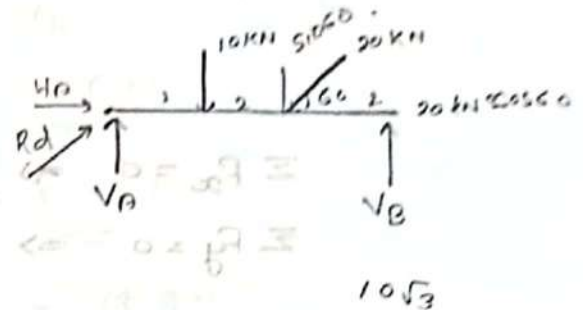 10KN sin60 20KN
HA 2 2 60 2 20 kN cos60
Rd
VA VB
10√3